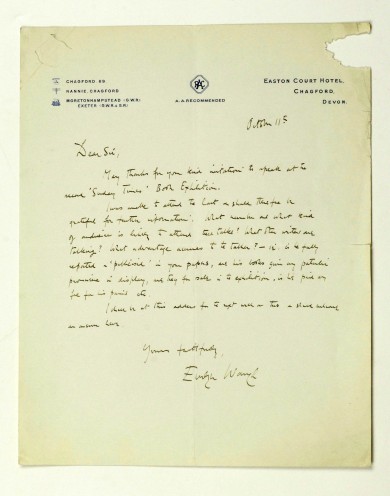 CHAGFORD 69
NANNIE, CHAGFORD
MORETONHAMPSTEAD (G.W.R)
EXETER (G.W.R & S.R)
A.A. RECOMMENDED
EASTON COURT HOTEL,
CHAGFORD,
DEVON.
October 11th
Dear Sir,
Many thanks for your kind invitation to speak at the
second 'Sunday Times' Book Exhibition.
I was unable to attend the last & should therefore be
grateful for further information. What number and what kind
of audience is likely to attend these talks? What other writers are
talking? What advantage accrues to the talker? – is he fully
reported & 'publicised' in your papers, are his books given any particular
prominence in display, are they for sale in the exhibition, is he paid any
fee for his pains etc
I shall be at this address for the next week or two & should welcome
an answer here
Yours faithfully,
Evelyn Waugh